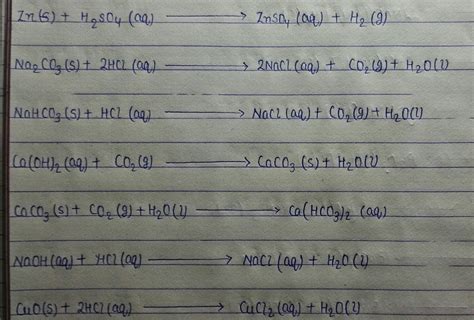 Zn(s) + H₂SO₄ (aq) ⟶ ZnSO₄ (aq) + H₂(g)
Na₂CO₃(s) + 2HCl (aq) ⟶ 2NaCl(aq) + CO₂(g) + H₂O(l)
NaHCO₃(s) + HCl (aq) ⟶ NaCl(aq) + CO₂(g) + H₂O(l)
Ca(OH)₂(aq) + CO₂(g) ⟶ CaCO₃ (s) + H₂O(l)
CaCO₃(s) + CO₂(g) + H₂O(l) ⟶ Ca(HCO₃)₂ (aq)
NaOH(aq) + HCl(aq) ⟶ NaCl (aq) + H₂O(l)
CuO(s) + 2HCl(aq) ⟶ CuCl₂(aq) + H₂O(l)